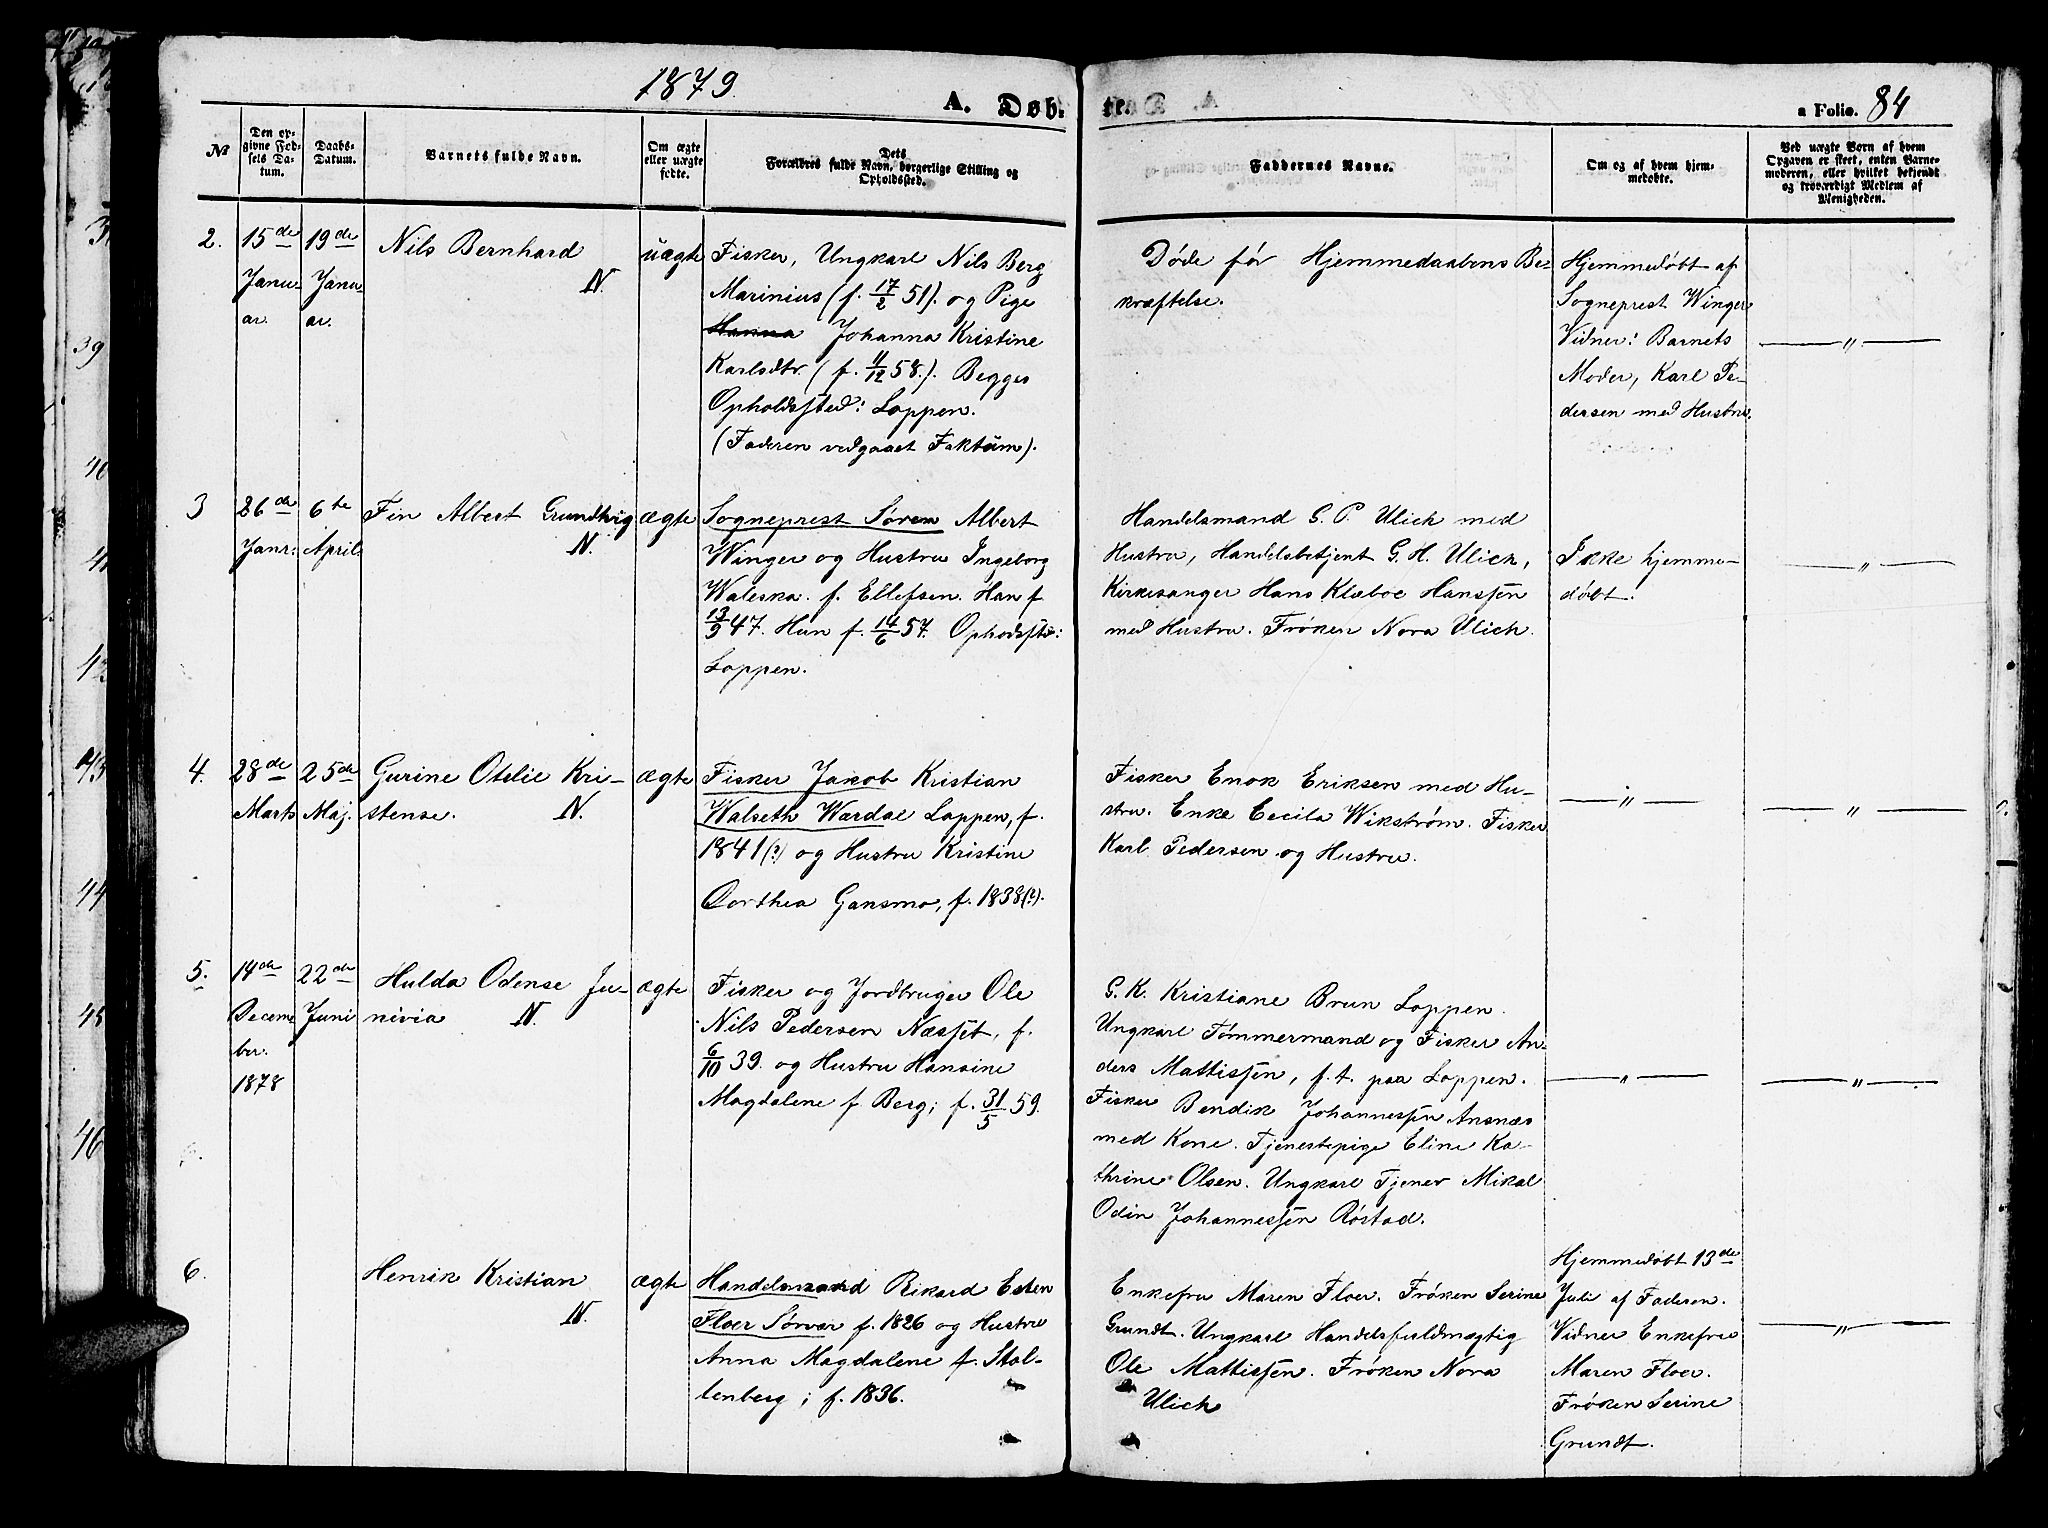 1879.
A. Døb-
te.
a Folio. 84
№
Den op-
givne Fød-
sels Da-
tum.
Daabs-
Datum.
Barnets fulde Navn.
Om ægte
eller uægte
fødte.
Dets
Forældres fulde Navn, borgerlige Stilling og
Opholdssted.
Faddernes Navne.
Om og af hvem hjem-
medøbte.
Ved uægte Børn af hvem
Opgaven er skeet, enten Barne-
moderen, eller hvilket bekjendt
og troværdigt Medlem af
Menigheden.
2.
15de
Janu-
ar.
19de
Janu-
ar.
Nils Bernhard
N.
uægte
Fisker, Ungkarl Nils Berg
Marinius (f. 17/2 51). og Pige
Hanna Johanna Kristine
Karlsdtr. (f. 4/12 58.). Begges
Opholdssted: Loppen.
(Faderen vedgaaet Faktum).
Døde før Hjemmedaabens Be-
kræftelse.
Hjemmedøbt af
Sogneprest Winger
Vidner: Barnets
Moder, Karl Pe-
dersen med Hustru.
— " —
3
26de
Janr:
6te
April
Fin Albert Grundtvig
N.
ægte
Sogneprest Søren Albert
Winger og Hustru Ingeborg
Waleska. f. Ellefsen. Han f.
13/9 47. Hun f. 14/6 57. Ophodsstd:
Loppen.
Handelsmand G. P. Ulich med
Hustru, Handelsbetjent G. H. Ulich,
Kirkesanger Hans Klæboe Hanssen
med Hustru. Frøken Nora Ulich.
Ikke hjemme-
døbt.
— " —
4.
28de
Marts
25de
Maj.
Gurine Otelie Kri-
stense.
N.
ægte
Fisker Jakob Kristian
Walseth Wærdal Loppen, f.
1841(?) og Hustru Kristine
Dorthea Gansmo, f. 1838(?).
Fisker Enok Eriksen med Hu-
stru. Enke Cecila Wikstrøm. Fisker
Karl Pedersen og Hustru.
— " —
— " —
5.
14de
Decem-
ber.
1878
22de
Juni
Hulda Odense Ju-
nivia
N.
ægte
Fisker og Jordbruger Ole
Nils Pedersen Næsset, f.
6/10 39. og Hustru Hansine
Magdalene f. Berg; f. 31/5 59.
G. K. Kristiane Brun Loppen.
Ungkarl Tømmermand og Fisker An-
ders Mattissen, f. t. paa Loppen.
Fisker Bendik Johannessen Ansnæs
med Kone. Tjenestepige Eline Ka-
thrine Olsen. Ungkarl Tjener Mikal
Odin Johannessen Røstad.
— " —
— " —
6.
Henrik Kristian
N.
ægte
Handelsmand Rikard Esten
Floer Sørvær f. 1826 og Hustru
Anna Magdalene f. Stol-
tenberg; f. 1836.
Enkefru Maren Floer. Frøken Serine
Grundt. Ungkarl Handelsfuldmægtig
Ole Mattissen. Frøken Nora
Ulich
Hjemmedøbt 13de
Juli af Faderen.
Vidner Enkefru
Maren Floer.
Frøken Serine
Grundt.
— " —
39
40
44
45
46